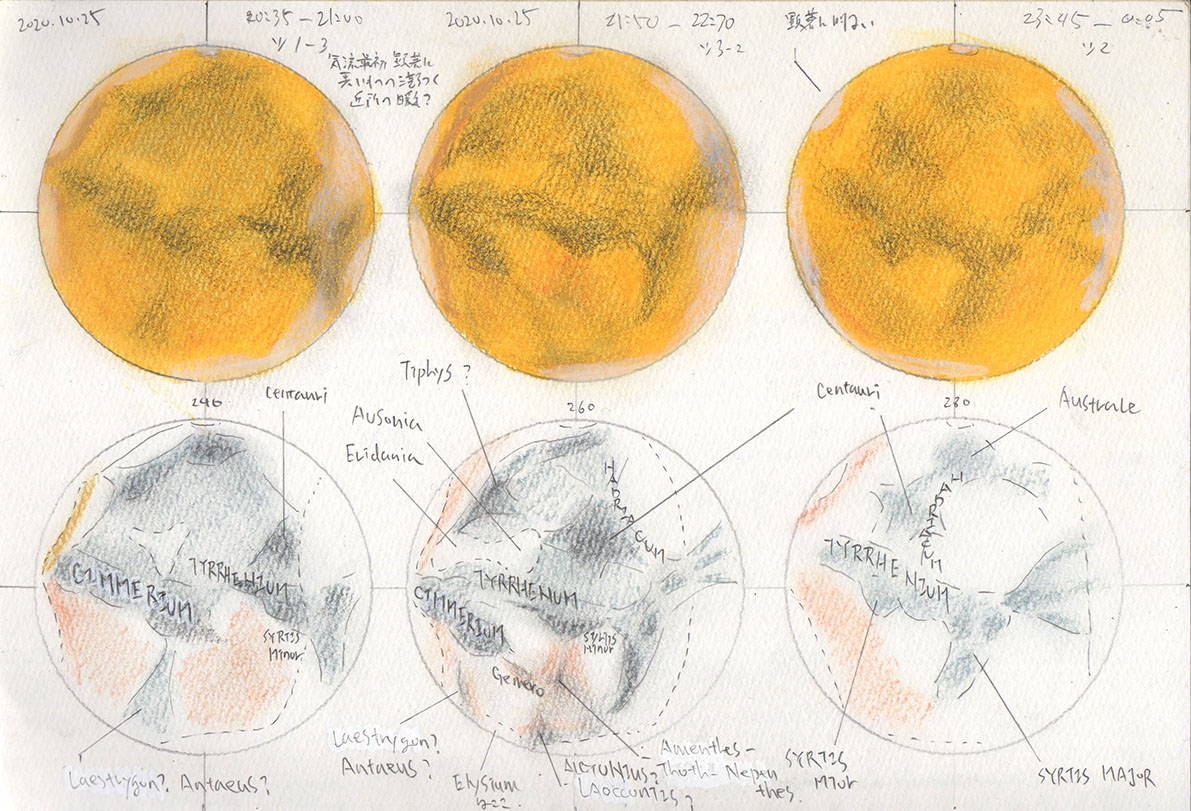 2020.10.25
20:35 - 21:00
ツ1-3
2020.10.25
21:50 - 22:70
ツ3-2
顕著に明るい
23:45 - 0:05
ツ2
気流最初 顕著に
240
Centauri
Tiphys?
Ausonia
Eridania
260
Centauri
280
Australe
CIMMERIUM
TYRRHENIUM
SYRTIS
Minor
HADRIACUM
TYRRHENUM
CIMMERIUM
SYRTIS
Minor
Gemero
HADRIACUM
TYRRHENIUM
Laestrygon? Antaeus?
Laestrygon?
Antaeus?
Elysium
ALCYONIUS?
LAOCCONTIS?
Amenthes-
Thoth-Nepen
thes.
SYRTIS
Minor
SYRTIS MAJOR